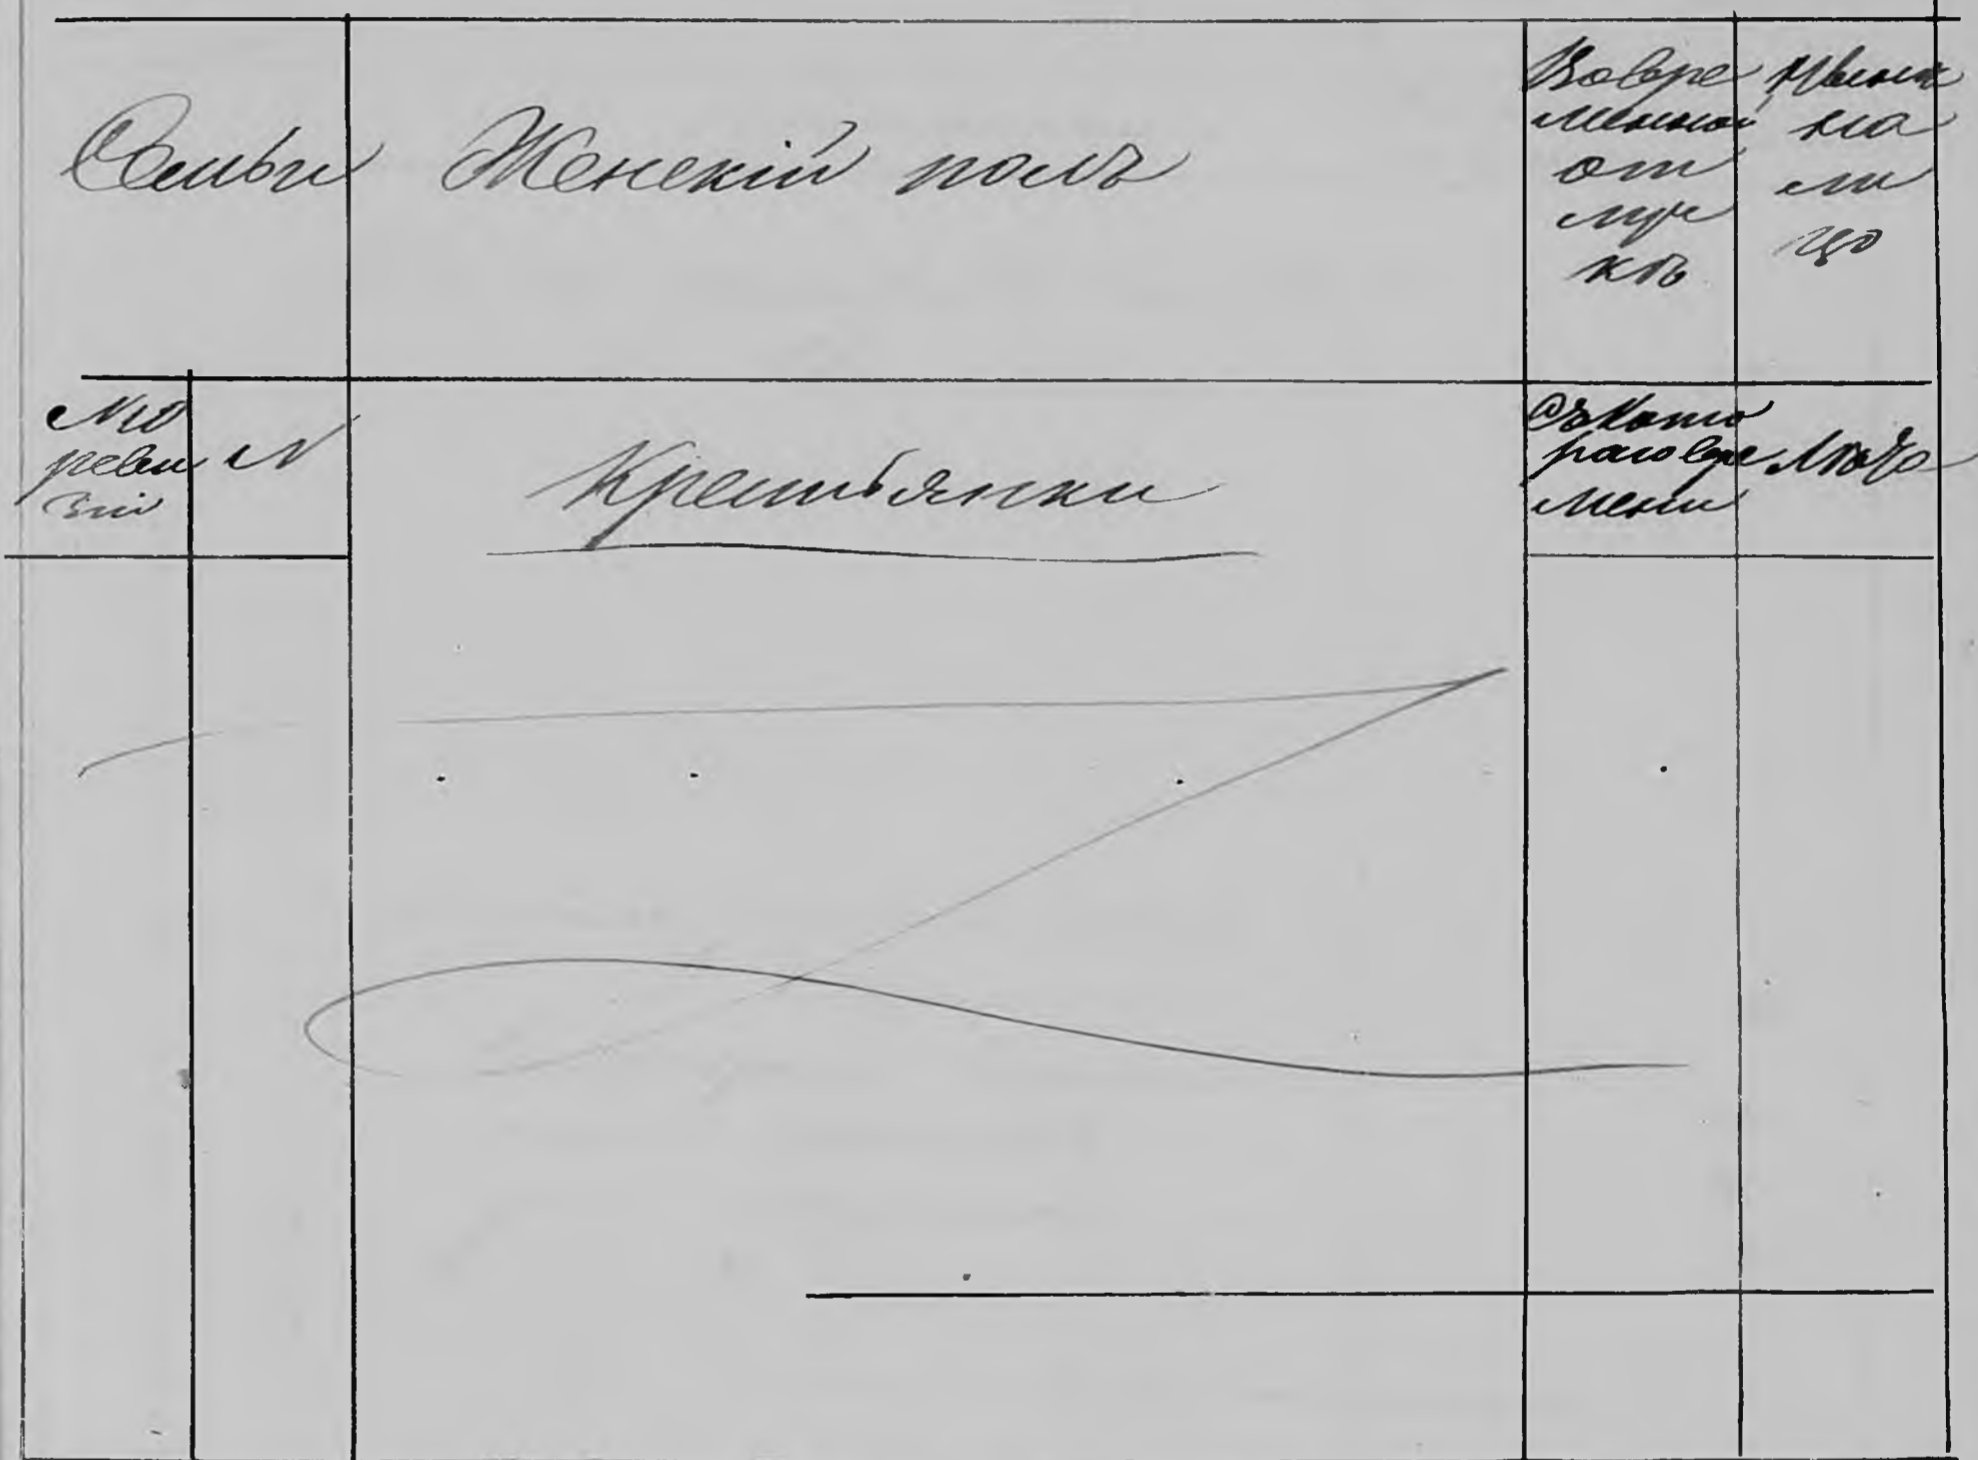 Семьи
Женскій полъ
Вовре
менной
от
луч
кѣ
Нынѣ
на
ли
цо
№ по
реви
зіи
№
Крестьянки
Съ кото
раго вре
мени
Лѣта